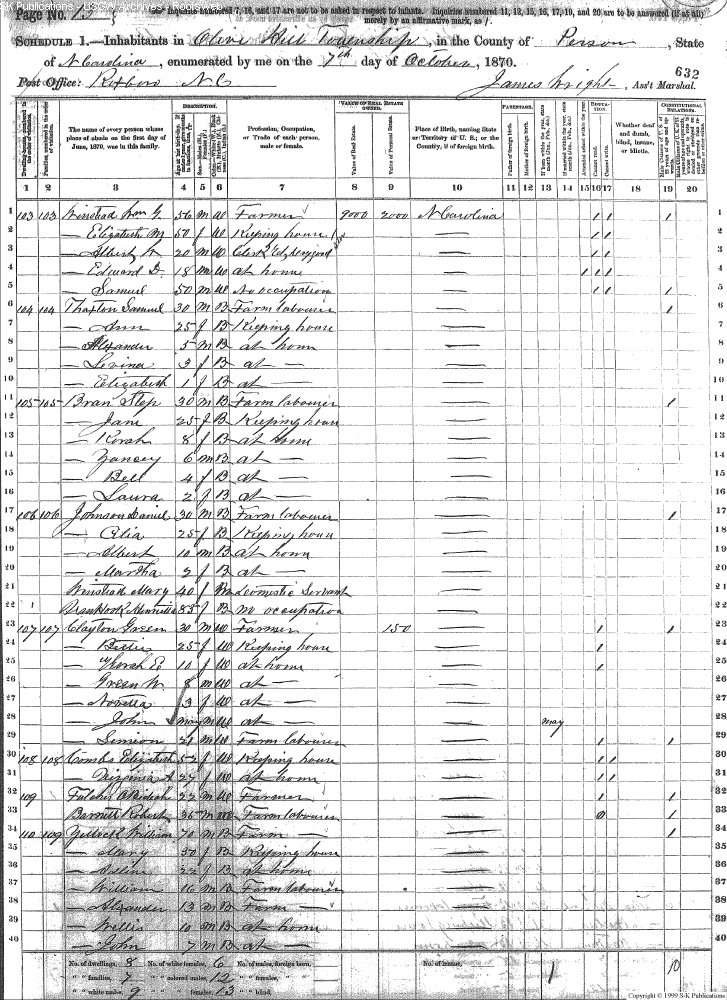 S-K Publications - USGW Archives - Rootsweb
Page No. 13
Inquiries numbered 7, 16, and 17 are not to be asked in respect to infants. Inquiries numbered 11, 12, 15, 16, 17, 19, and 20 are to be answered (if at all) merely by an affirmative mark, as /.
SCHEDULE 1.—Inhabitants in Olive Hill Township, in the County of Person, State
of N Carolina, enumerated by me on the 7th day of October, 1870.
Post Office: Roxboro N C
James Wright, Ass't Marshal.
632
DESCRIPTION.
VALUE OF REAL ESTATE OWNED.
PARENTAGE.
EDUCATION.
CONSTITUTIONAL RELATIONS.
The name of every person whose place of abode on the first day of June, 1870, was in this family.
Profession, Occupation, or Trade of each person, male or female.
Value of Real Estate.
Place of Birth, naming State or Territory of U. S.; or the Country, if of foreign birth.
Father of foreign birth.
Mother of foreign birth.
Attended school within the year.
Cannot read.
Cannot write.
Whether deaf and dumb, blind, insane, or idiotic.
1 2 3 4 5 6 7 8 9 10 11 12 13 14 15 16 17 18 19 20
1 103 103 Winstead Wm G. 56 m W Farmer 9000 2000 N Carolina / / / 1
2 — Elizabeth M 50 f W Keeping house — / / 2
3 — Albert 20 m W Clerk — / / 3
4 — Edward D. 18 m W at home — / / / 4
5 — Samuel 50 m W No occupation — / / / 5
6 104 104 Thaxton Samuel 30 m B Farm labourer — / 6
7 — Ann 25 f B Keeping house — 7
8 — Alexander 5 m B at home — 8
9 — Levina 3 f B at — — 9
10 — Elizabeth 1 f B at — — 10
11 105 105 Bran Step 30 m B Farm labourer — / 11
12 — Jane 25 f B Keeping house — 12
13 — Norah 8 f B at home — 13
14 — Yancey 6 m B at — — 14
15 — Bell 4 f B at — — 15
16 — Laura 2 f B at — — 16
17 106 106 Johnson Daniel 30 m B Farm labourer — / 17
18 — Celia 25 f B Keeping house — 18
19 — Albert 10 m B at home — 19
20 — Martha 2 f B at — — 20
21 Winstead Mary 40 f Domestic Servant — 21
22 85 f B no occupation — 22
23 107 107 Clayton Green 30 m W Farmer 150 — / / 23
24 — Bettie 25 f W Keeping house — / 24
25 — 10 f W at home — / 25
26 — Green W. 8 m W at — — 26
27 — Novella 3 f W at — — 27
28 — John may m W at — — may 28
29 — Simeon 21 m W Farm labourer — / / 29
30 108 108 Combs Elizabeth 52 f W Keeping house — / / 30
31 — Virginia A 27 f W at home — / / 31
32 109 Fulcher 22 m W Farmer — / / 32
33 Barnett Robert 35 m W Farm labourer — / 33
34 110 109 William 70 m B Farm — — / 34
35 — Mary 50 f B Keeping house — 35
36 — 22 f B at home — 36
37 — William 16 m B Farm labourer — 37
38 — Alexander 13 m B Farm — — 38
39 — Willis 10 m B at home — 39
40 — John 7 m B at — — 40
No. of dwellings, 8 No. of white females, 6 No. of males, foreign born, No. of insane,
" " families, 7 " " colored males, 12 " " females, "
" " white males, 9 " " " females, 13 " " blind, 1 10
Copyright © 1999 S-K Publications